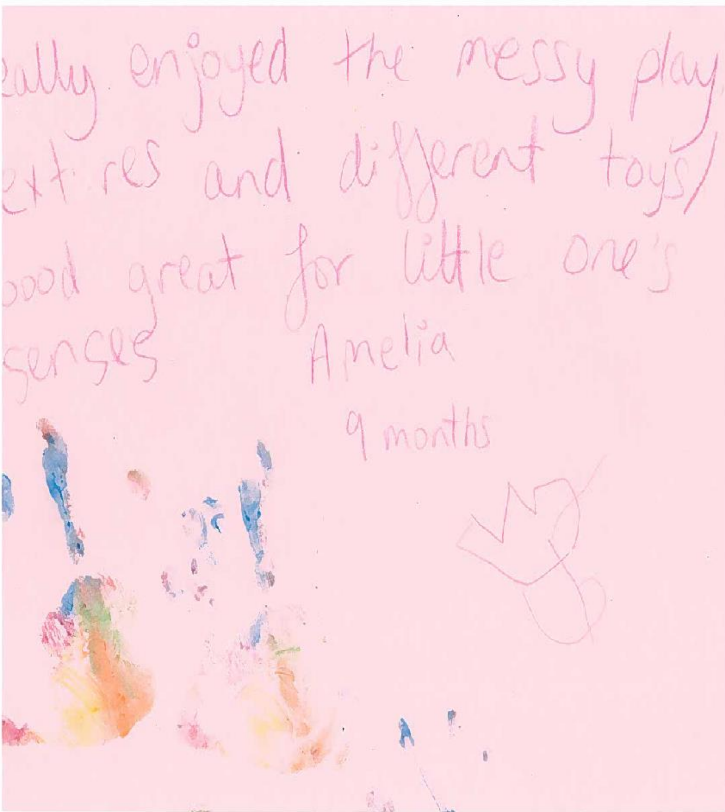 eally enjoyed the messy play
ext res and different toys/
oood great for little one's
senses Amelia
9 months